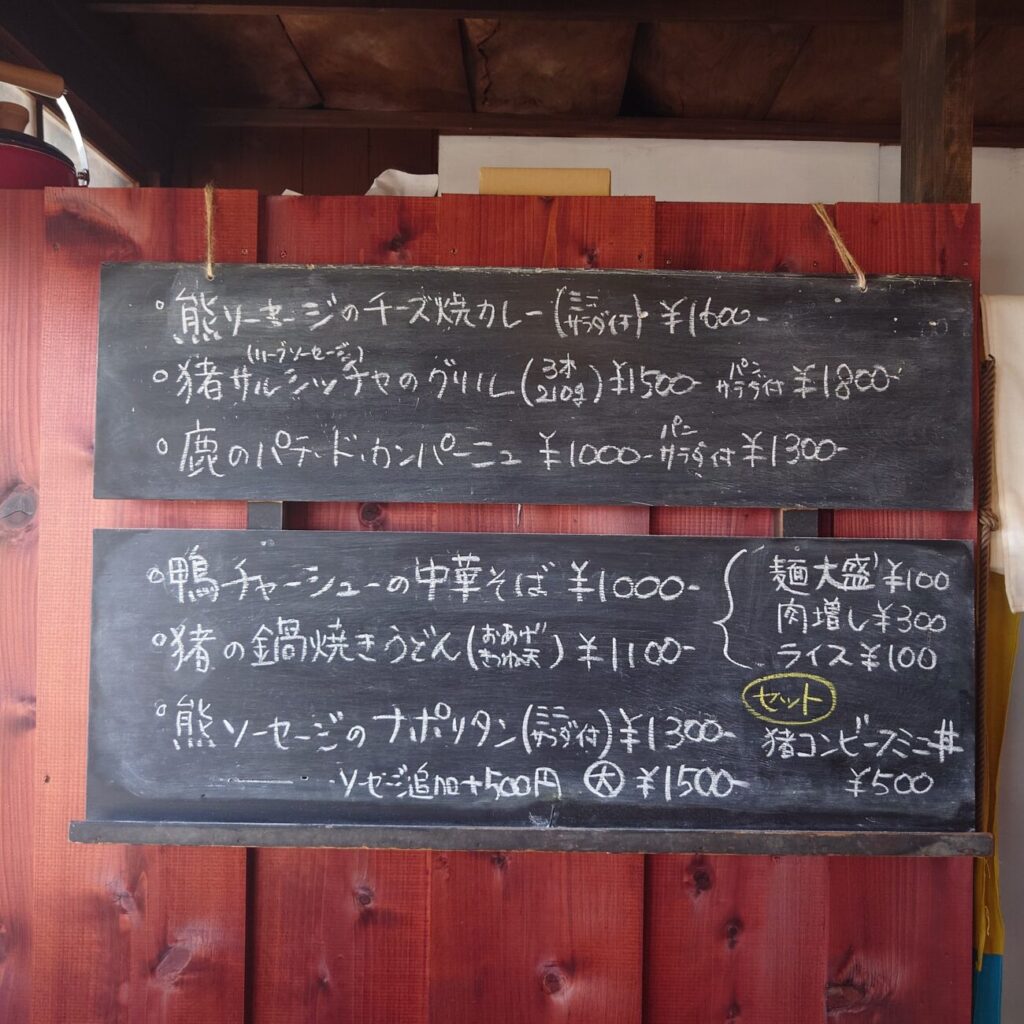 。熊ソーセージのチーズ焼カレー(ミニサラダ付)¥1600-
(ハーブソーセージ)
。猪サルシッチャのグリル(3本210g)¥1500- パンサラダ付¥1800-
。鹿のパテ・ド・カンパーニュ ¥1000- パンサラダ付¥1300-
。鴨チャーシューの中華そば ¥1000-
麺大盛¥100
肉増し¥300
ライス¥100
。猪の鍋焼きうどん(おあげきつね天)¥1100-
。熊ソーセージのナポリタン(ミニサラダ付)¥1300-
ソーセージ追加+500円 大 ¥1500-
セット
猪コンビーフミニ丼
¥500